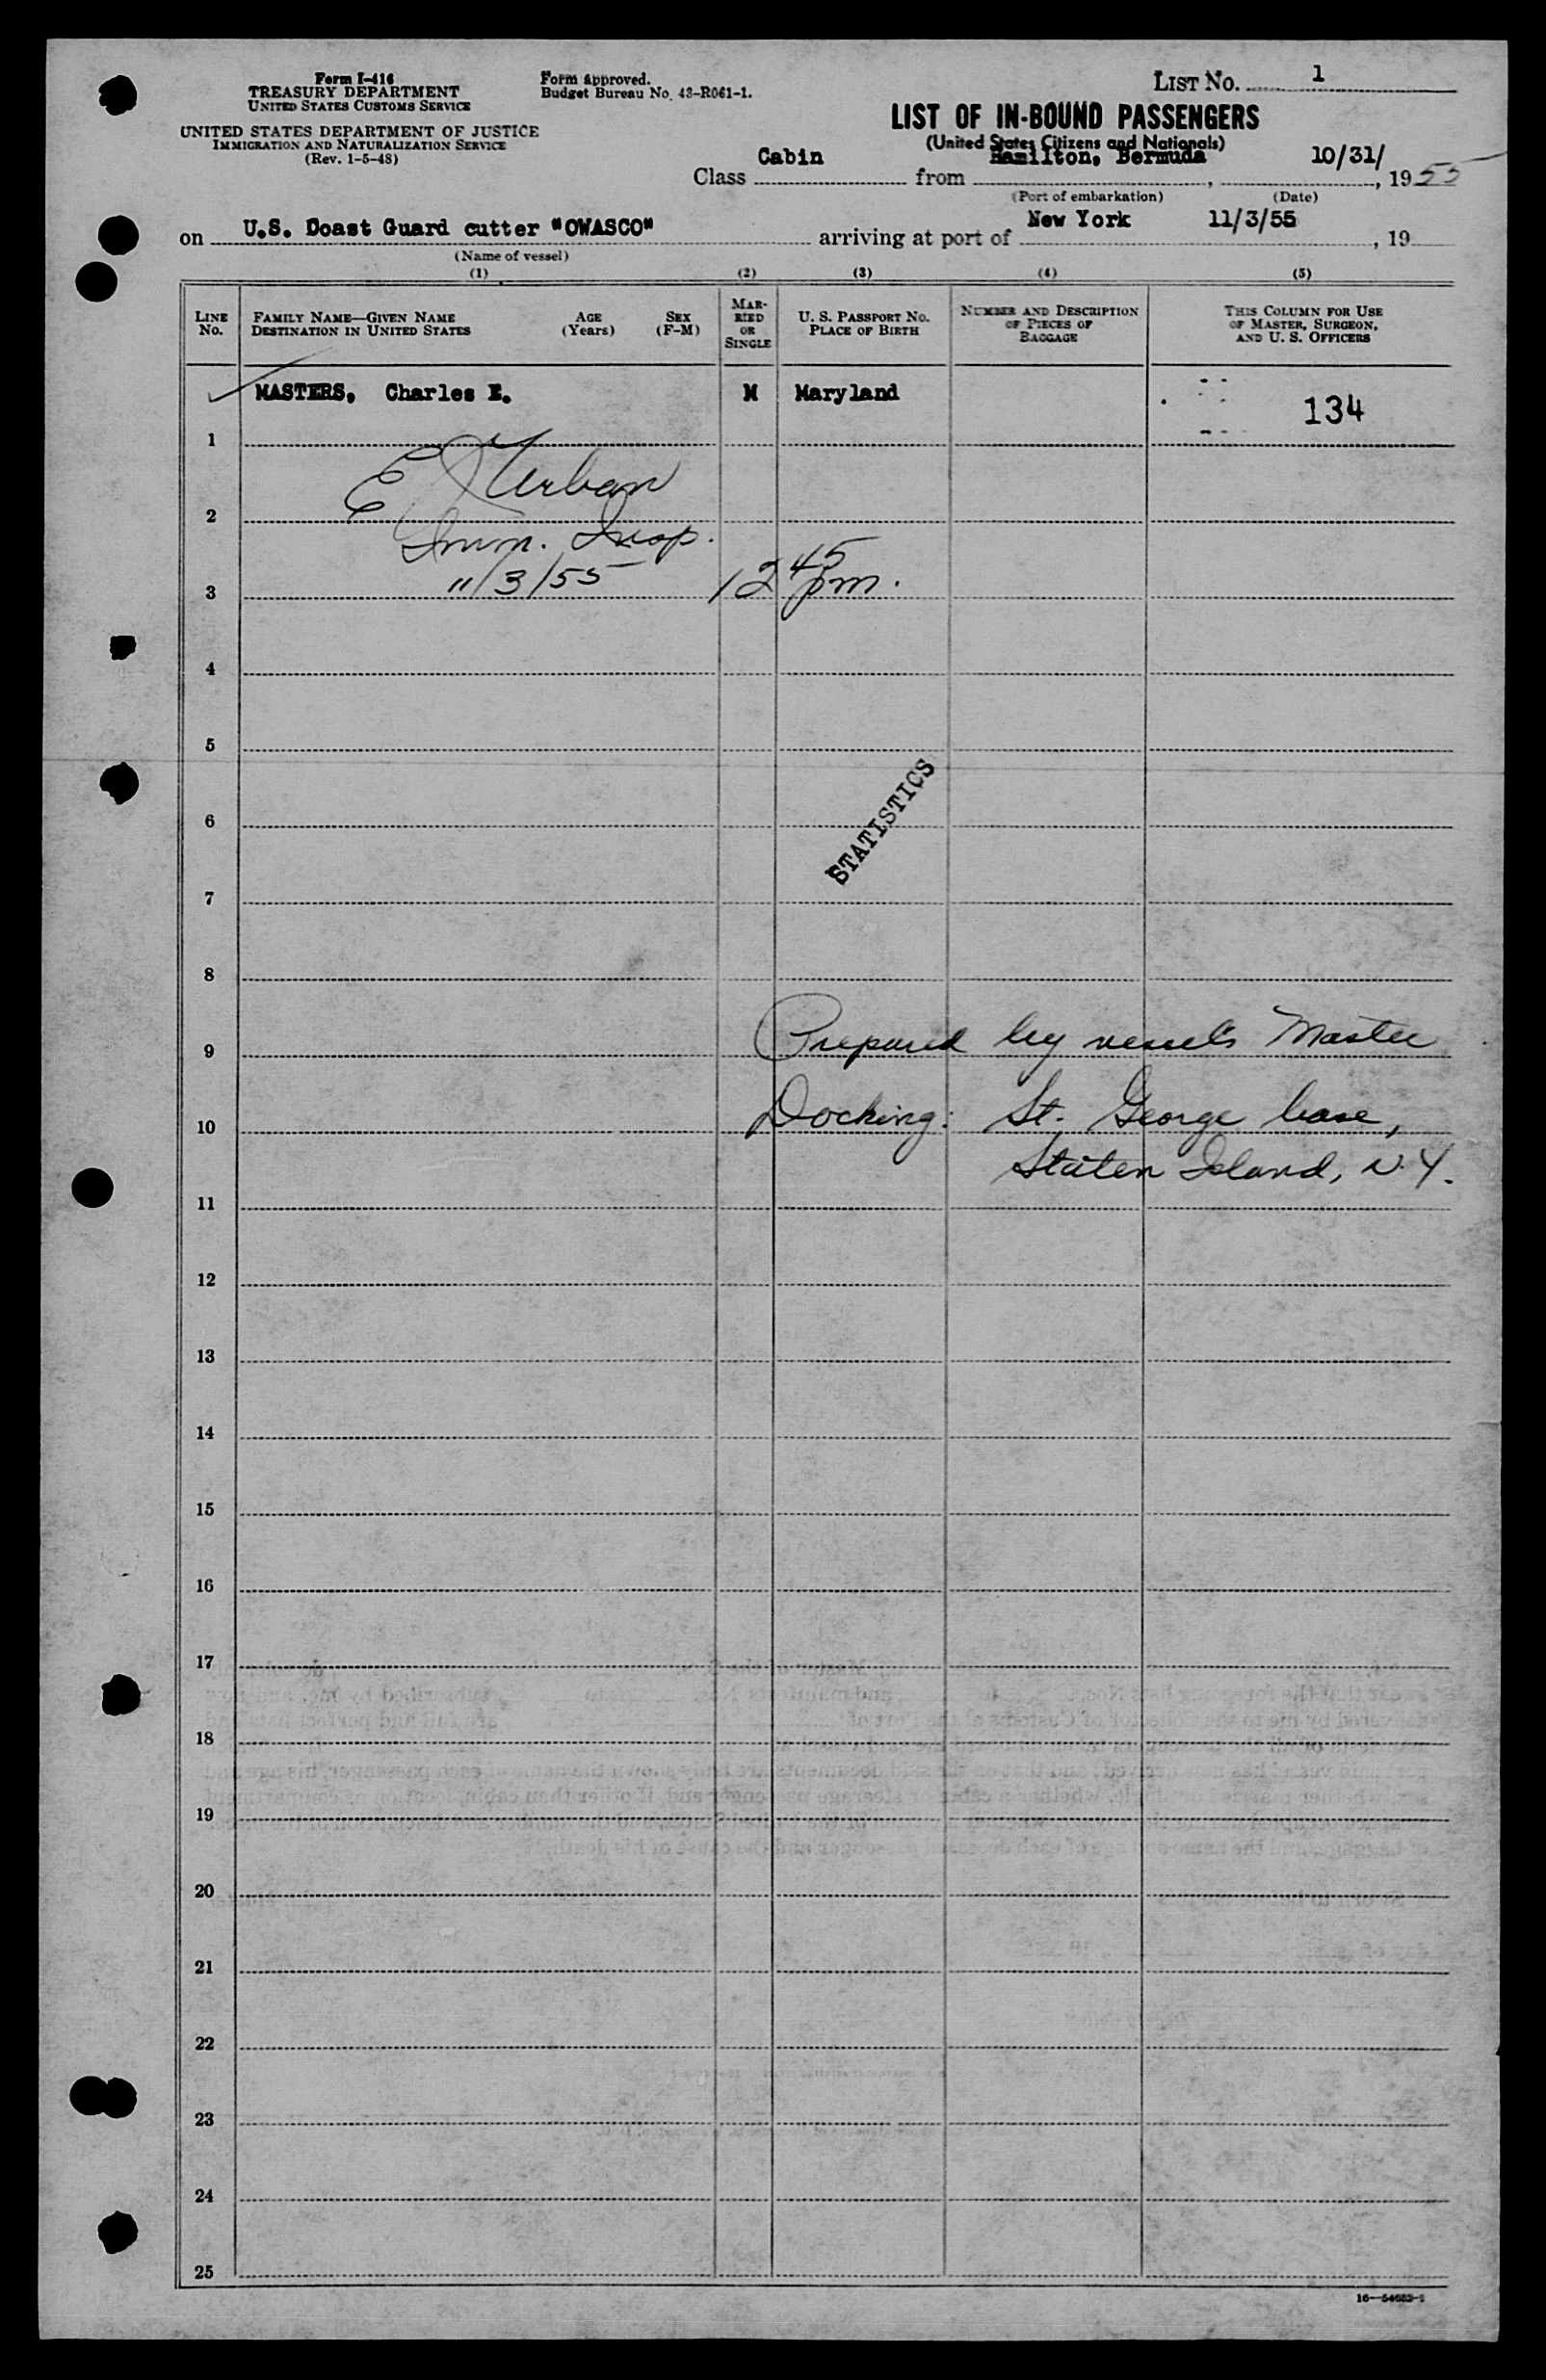 Form I-416
TREASURY DEPARTMENT
UNITED STATES CUSTOMS SERVICE
UNITED STATES DEPARTMENT OF JUSTICE
IMMIGRATION AND NATURALIZATION SERVICE
(Rev. 1-5-48)
Form approved.
Budget Bureau No. 43-R061-1.
LIST NO. 1
LIST OF IN-BOUND PASSENGERS
(United States Citizens and Nationals)
Class Cabin from Hamilton, Bermuda, 10/31/, 1955
(Port of embarkation) (Date)
on U.S. Doast Guard cutter "OWASCO" arriving at port of New York 11/3/55, 19
(Name of vessel)
(1) (2) (3) (4) (5)
LINE No.
FAMILY NAME—GIVEN NAME
DESTINATION IN UNITED STATES
AGE (Years)
SEX (F-M)
MARRIED OR SINGLE
U. S. PASSPORT NO.
PLACE OF BIRTH
NUMBER AND DESCRIPTION OF PIECES OF BAGGAGE
THIS COLUMN FOR USE OF MASTER, SURGEON, AND U. S. OFFICERS
MASTERS, Charles E. M Maryland 134
1
Urban
2
Imm. Insp.
11/3/55 12 45 pm.
3
4
5
STATISTICS
6
7
8
Prepared by vessel's Master
9
Docking: St. George base,
10
Staten Island, N.Y.
11
12
13
14
15
16
17
18
19
20
21
22
23
24
25